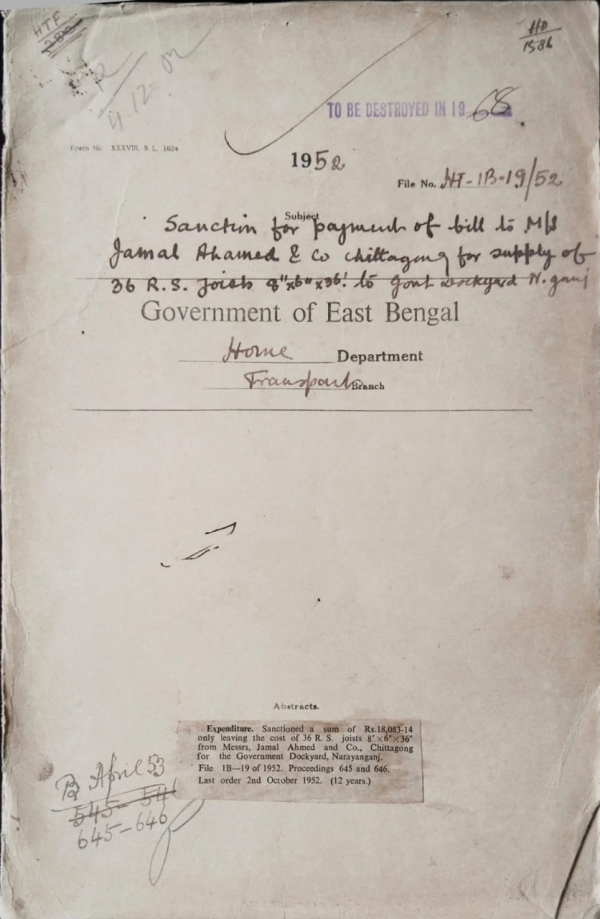 HTF
HD
1586
4 12 02
TO BE DESTROYED IN 1968
Form No. XXXVIII. S. L. 1624
1952
File No. HT-1B-19/52
Subject
Sanction for payment of bill to M/S
Jamal Ahamed & Co Chittagong for supply of
36 R.S. Joists 8"x6"x36' to Govt Dockyard N.ganj
Government of East Bengal
Home Department
Transport Branch
Abstracts.
Expenditure. Sanctioned a sum of Rs.18,083-14
only leaving the cost of 36 R. S. joists 8"×6"×36'
from Messrs, Jamal Ahmed and Co., Chittagong
for the Government Dockyard, Narayanganj.
File 1B—19 of 1952. Proceedings 645 and 646.
Last order 2nd October 1952. (12 years.)
B April 53
545-546
645-646